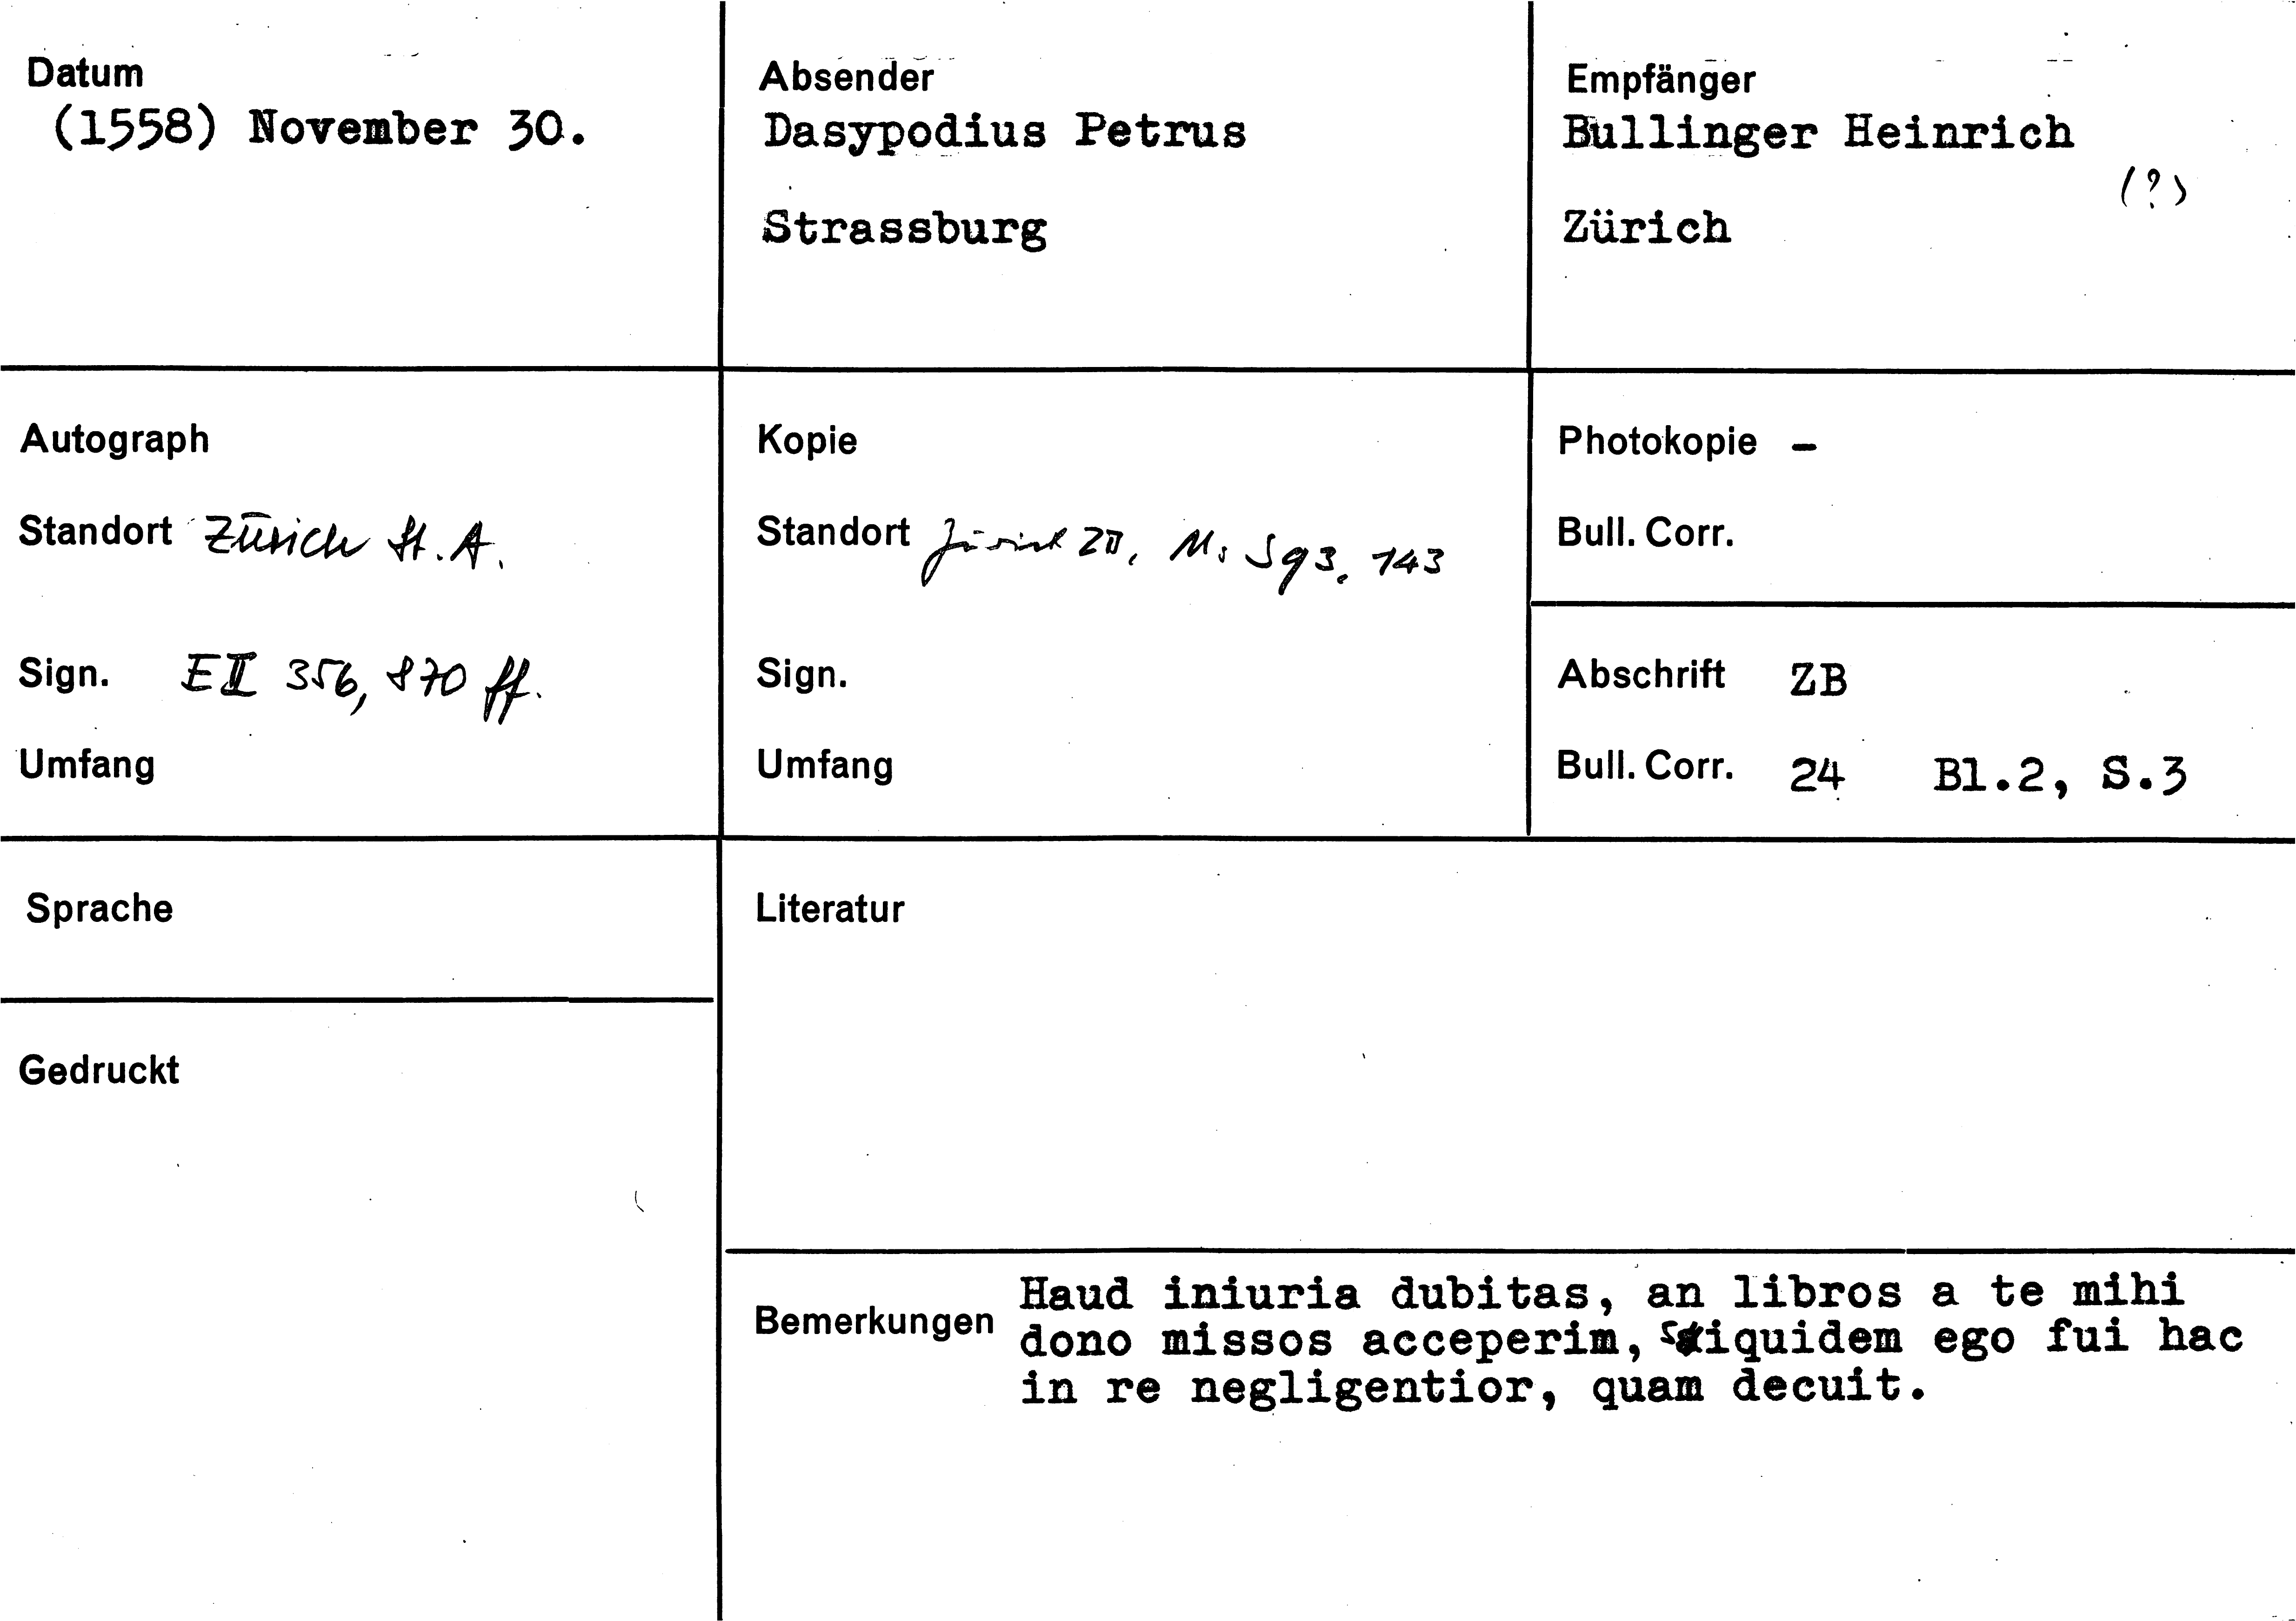 Datum
(1558) November 30.
Absender
Dasypodius Petrus
Strassburg
Empfänger
Bullinger Heinrich
(?)
Zürich
Autograph
Standort Zürich St. A.
Sign. E II 356, 870 ff.
Umfang
Kopie
Standort Zürich ZB, Ms S 93, 143
Sign.
Umfang
Photokopie -
Bull. Corr.
Abschrift ZB
Bull. Corr. 24 Bl.2, S.3
Sprache
Gedruckt
Literatur
Bemerkungen
Haud iniuria dubitas, an libros a te mihi
dono missos acceperim, siquidem ego fui hac
in re negligentior, quam decuit.